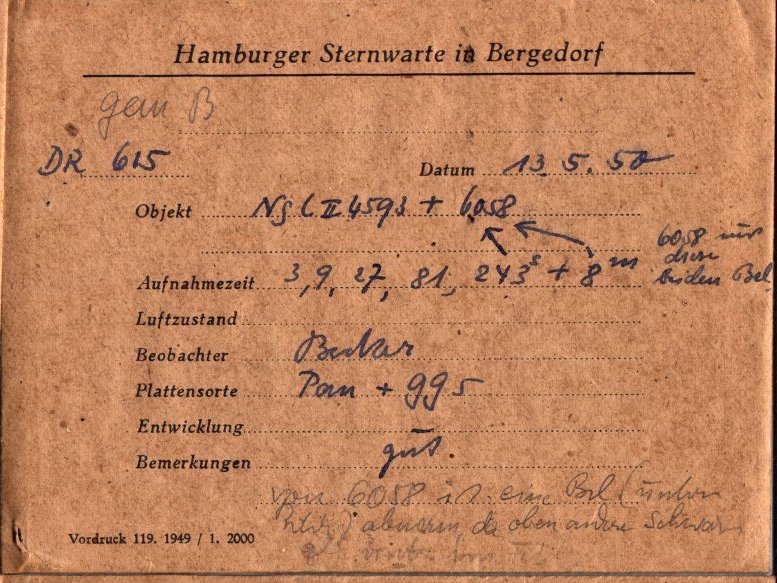 Hamburger Sternwarte in Bergedorf
gem B
DR 615 Datum 13.5.50
Objekt NGC II 4593 + 6058
6058 nur
diese
beiden Bel
Aufnahmezeit 3, 9, 27, 81, 243s + 8m
Luftzustand
Beobachter Becker
Plattensorte Pan + gg 5
Entwicklung
Bemerkungen gut
von 6058 ist eine Bel (unten
da oben andere
Vordruck 119. 1949 / 1. 2000